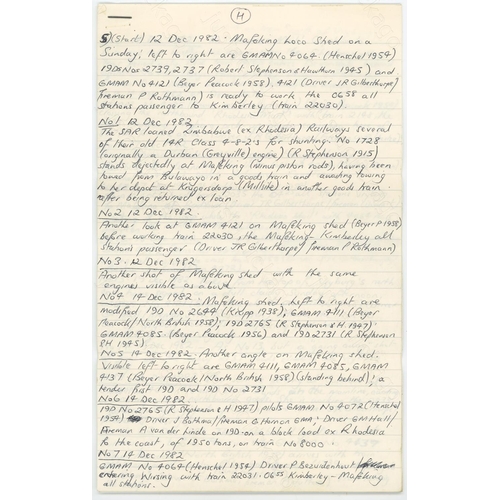 H
S (Start) 12 Dec 1982 · Mafeking Loco Shed on a
Sunday; left to right are GMAM No 4064 (Henschel 1954)
19Ds Nos 2739, 2737 (Robert Stephenson & Hawthorn 1945) and
GMAM No 4121 (Beyer Peacock 1958). 4121 (Driver JR Gilberthorpe/
fireman P Rothmann) is ready to work the 0658 all
stations passenger to Kimberley (train 22030).
No1 12 Dec 1982
The SAR loaned Zimbabwe (ex Rhodesia) Railways several
of their old 14R Class 4-8-2's for shunting. No 1728
(originally a Durban (Greyville) engine) (R Stephenson 1915)
stands dejectedly at Mafeking (minus piston rods) having been
towed from Bulawayo in a goods train and awaiting towing
to her depot at Krugersdorp (Millsite) in another goods train
after being returned ex loan.
No2 12 Dec 1982.
Another look at GMAM 4121 on Mafeking shed (Beyer P 1958)
before working train 22030, the Mafeking - Kimberley all
stations passenger (Driver JR Gilberthorpe/ fireman P Rothmann)
No3 · 12 Dec 1982
Another shot of Mafeking shed with the same
engines visible as above
No4 14 Dec 1982 · Mafeking shed. Left to right are
modified 19D No 2644 (Krupp 1938); GMAM 4111 (Beyer
Peacock/North British 1958); 19D 2765 (R Stephenson & H 1947)
GMAM 4085 (Beyer Peacock 1956) and 19D 2731 (R Stephenson
&H 1945)
No5 14 Dec 1982 · Another angle on Mafeking shed.
Visible left to right are GMAM 4111, GMAM 4085, GMAM
4137 (Beyer Peacock/North British 1958) (standing behind); a
tender first 19D and 19D No 2731
No6 14 Dec 1982.
19D No 2765 (R Stephenson & H 1947) pilots GMAM No 4072 (Henschel
1954) Driver J Bothma/fireman G Harmon GMA · Driver GM Hall/
Fireman A van der Linde on 19D · on a block load ex Rhodesia
to the coast, of 1950 tons, on train No 8000 ·
No 7 14 Dec 1982
GMAM No 4064 (Henschel 1954) Driver P Bezuidenhout/
entering Wirsing with train 22031 · 0655 Kimberley - Mafeking
all stations ·